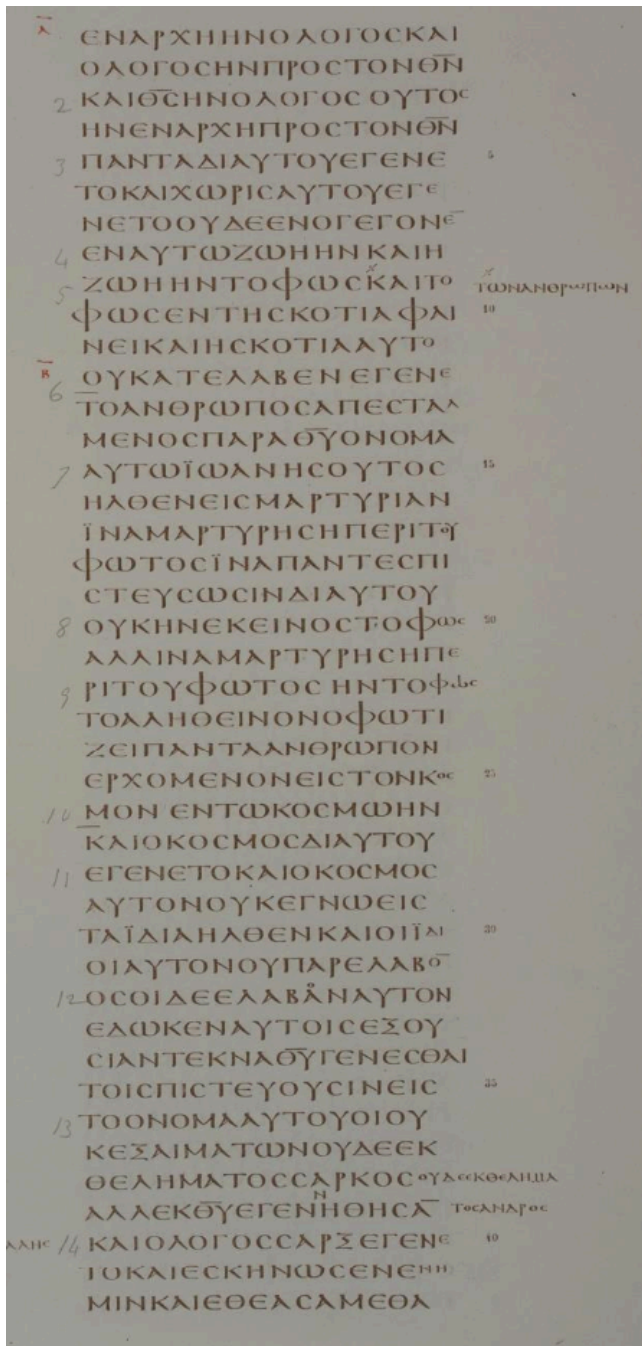 Α̅ ΕΝΑΡΧΗΗΝΟΛΟΓΟϹΚΑΙ
ΟΛΟΓΟϹΗΝΠΡΟϹΤΟΝΘ̅Ν̅
2 ΚΑΙΘ̅Ϲ̅ΗΝΟΛΟΓΟϹ ΟΥΤΟϹ
ΗΝΕΝΑΡΧΗΠΡΟϹΤΟΝΘ̅Ν̅
3 ΠΑΝΤΑΔΙΑΥΤΟΥΕΓΕΝΕ 5
ΤΟΚΑΙΧΩΡΙϹΑΥΤΟΥΕΓΕ
ΝΕΤΟΟΥΔΕΕΝΟΓΕΓΟΝΕ̅
4 ΕΝΑΥΤΩΖΩΗΗΝΚΑΙΗ
5 ΖΩΗΗΝΤΟΦΩϹΚΑΙΤΟ ΤΩΝΑΝΘΡΩΠΩΝ
ΦΩϹΕΝΤΗϹΚΟΤΙΑΦΑΙ 10
ΝΕΙΚΑΙΗϹΚΟΤΙΑΑΥΤΟ
Β̅ 6 ΟΥΚΑΤΕΛΑΒΕΝ ΕΓΕΝΕ
ΤΟΑΝΘΡΩΠΟϹΑΠΕϹΤΑΛ
ΜΕΝΟϹΠΑΡΑΘ̅Υ̅ΟΝΟΜΑ
7 ΑΥΤΩΪΩΑΝΗϹΟΥΤΟϹ 15
ΗΛΘΕΝΕΙϹΜΑΡΤΥΡΙΑΝ
ΪΝΑΜΑΡΤΥΡΗϹΗΠΕΡΙΤΟΥ
ΦΩΤΟϹΪΝΑΠΑΝΤΕϹΠΙ
ϹΤΕΥϹΩϹΙΝΔΙΑΥΤΟΥ
8 ΟΥΚΗΝΕΚΕΙΝΟϹΤΟΦΩϹ 20
ΑΛΛΙΝΑΜΑΡΤΥΡΗϹΗΠΕ
9 ΡΙΤΟΥΦΩΤΟϹ ΗΝΤΟΦΩϹ
ΤΟΑΛΗΘΕΙΝΟΝΟΦΩΤΙ
ΖΕΙΠΑΝΤΑΑΝΘΡΩΠΟΝ
ΕΡΧΟΜΕΝΟΝΕΙϹΤΟΝΚΟϹ 25
10 ΜΟΝ ΕΝΤΩΚΟϹΜΩΗΝ
ΚΑΙΟΚΟϹΜΟϹΔΙΑΥΤΟΥ
11 ΕΓΕΝΕΤΟΚΑΙΟΚΟϹΜΟϹ
ΑΥΤΟΝΟΥΚΕΓΝΩΕΙϹ
ΤΑΪΔΙΑΗΛΘΕΝΚΑΙΟΙΪΔΙ 30
ΟΙΑΥΤΟΝΟΥΠΑΡΕΛΑΒΟ̅
12 ΟϹΟΙΔΕΕΛΑΒΑΝΑΥΤΟΝ
ΕΔΩΚΕΝΑΥΤΟΙϹΕΞΟΥ
ϹΙΑΝΤΕΚΝΑΘ̅Υ̅ΓΕΝΕϹΘΑΙ
ΤΟΙϹΠΙϹΤΕΥΟΥϹΙΝΕΙϹ 35
13 ΤΟΟΝΟΜΑΑΥΤΟΥΟΙΟΥ
ΚΕΞΑΙΜΑΤΩΝΟΥΔΕΕΚ
ΘΕΛΗΜΑΤΟϹϹΑΡΚΟϹ ΟΥΔΕΕΚΘΕΛΗΜΑ
ΑΛΛΕΚΘ̅Υ̅ΕΓΕΝΗΘΗϹΑ̅ ΤΟϹΑΝΔΡΟϹ
ΑΛΗϹ 14 ΚΑΙΟΛΟΓΟϹϹΑΡΞΕΓΕΝΕ 40
ΤΟΚΑΙΕϹΚΗΝΩϹΕΝΕΝΗ
ΜΙΝΚΑΙΕΘΕΑϹΑΜΕΘΑ